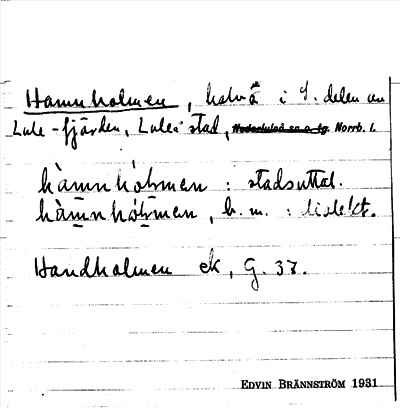 Hamnholmen, halvö i S. delen av
Lule-fjärden, Luleå stad, Nederluleå sn o. tg. Norrb. l.
hàmnhólmen : stadsuttal.
hàmnhólmen, b. m. : dialekt.
Handholmen ek, G. 37.
EDVIN BRÄNNSTRÖM 1931